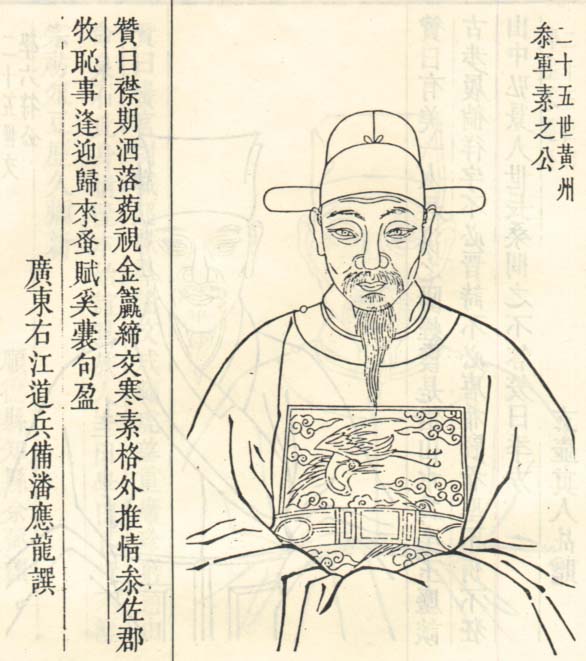 二十五世黃州
叅軍素之公
贊曰襟期洒落藐視金籯締交寒素格外推情叅佐郡
牧恥事逢迎歸來蚤賦奚囊句盈
廣東右江道兵備潘應龍譔